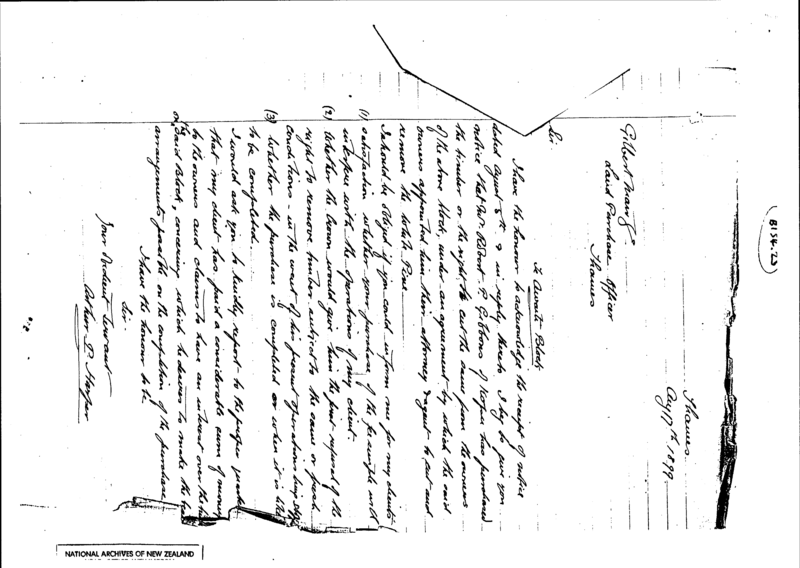 8154. 23
Thames
Aug 17th 1899
Gilbert Mair Esq
Land Purchase Officer
Thames
Sir
Te Block
I have the honour to acknowledge the receipt of
dated August 5th & in reply thereto I beg to give you
notice that Mr Robert P. Gibbons of has purchased
the timber or the right to cut the same from the owners
of the above block, under an agreement by which the said
owners appointed him their attorney & agent to cut and
remove the White Pine
I should be obliged if you could inform me for my client's
(1) satisfaction whether your purchase of the freehold will
interfere with the operations of my client.
(2) Whether the Crown would give him the first refusal of the
right to remove timber subject to the same or good
conditions in the event of his present operations being
(3) Whether the purchase is completed or when it is likely
to be completed.
I would ask you to kindly report to the proper quarter
that my client has paid a considerable sum of money
to the owners and claims to have an interest over the
or said Block, concerning which he desires to make the
arrangements possible on the completion of the purchase
I have the honour to be
Sir
Your Obedient Servant
NATIONAL ARCHIVES OF NEW ZEALAND